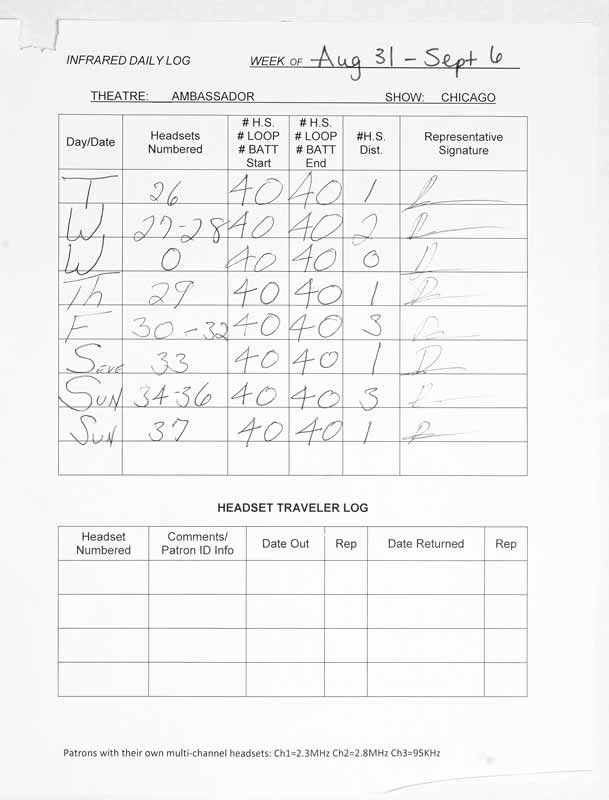 INFRARED DAILY LOG WEEK OF Aug 31 - Sept 6
THEATRE: AMBASSADOR SHOW: CHICAGO
Day/Date Headsets Numbered # H.S. # LOOP # BATT Start # H.S. # LOOP # BATT End #H.S. Dist. Representative Signature
T 26 40 40 1
W 27-28 40 40 2
W 0 40 40 0
Th 29 40 40 1
F 30-32 40 40 3
S EVE 33 40 40 1
SUN 34-36 40 40 3
SUN 37 40 40 1
HEADSET TRAVELER LOG
Headset Numbered Comments/ Patron ID Info Date Out Rep Date Returned Rep
Patrons with their own multi-channel headsets: Ch1=2.3MHz Ch2=2.8MHz Ch3=95KHz